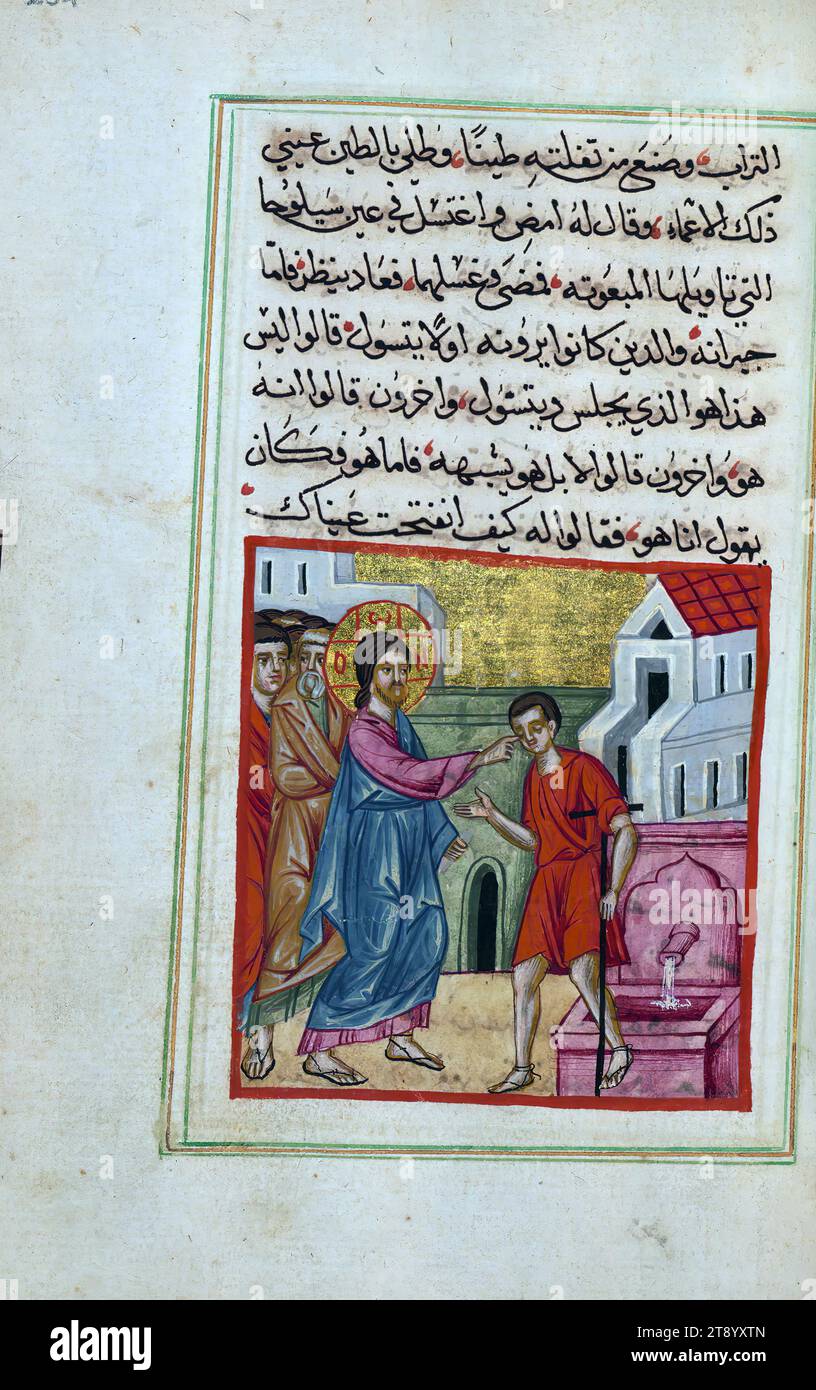 التراب، وصنع من تفلته طينًا، وطلي بالطين عيني
ذلك الاعماء، وقال له امضِ واغتسل في عين سيلوحا
التي تاويلها المبعوته، فمضى وغسلهما، فعاد ينظر، فامّا
جيرانه، والدين كانوا يرونه اولًا يتسول، قالوا اليس
هذا هوا الذي يجلس ويتسول، واخرون قالوا انه
هو، واخرون قالوا لا بل هو يشبهه، فاما هو فكان
يقول انا هو، فقالوا له كيف انفتحت عيناك،
Ο Ѡ Ν
alamy
Image ID: 2T8YXTN
www.alamy.com